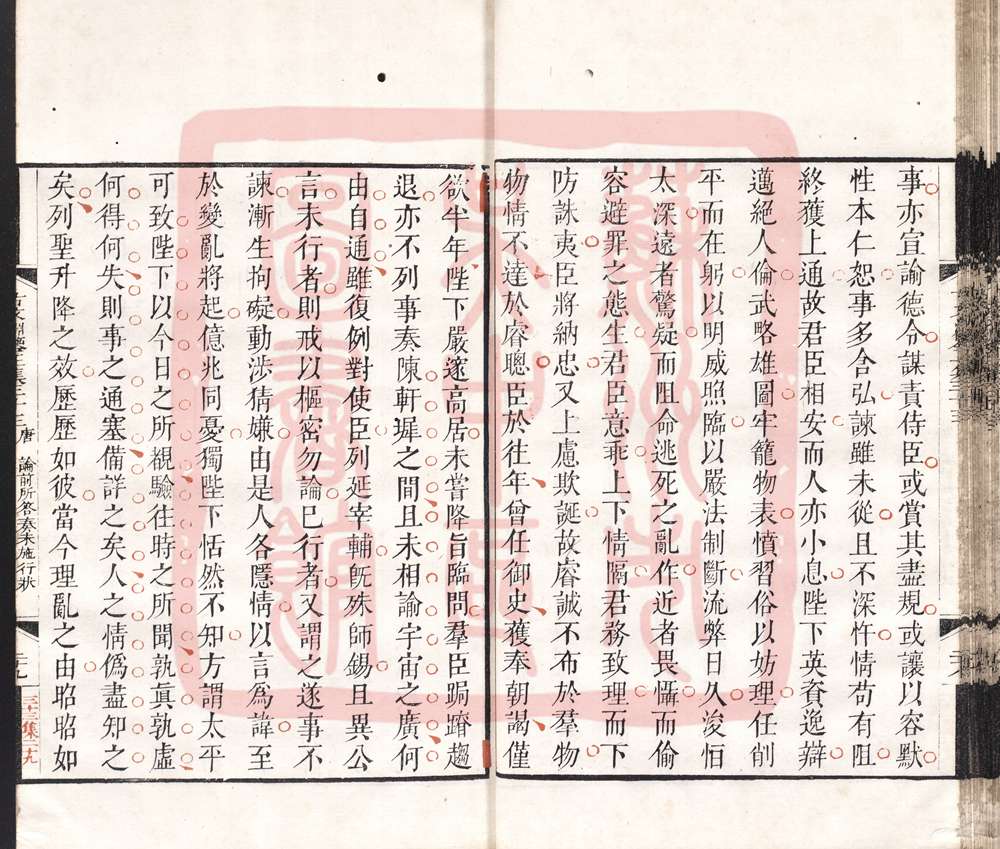 事亦宣諭德令謀責侍臣或賞其盡規或讓以容默
性本仁恕事多合弘諫雖未從且不深忤情苟有阻
終獲上通故君臣相安而人亦小息陛下英資逸辯
邁絕人倫武略雄圖牢籠物表憤習俗以妨理任削
平而在躬以明威照臨以嚴法制斷流弊日久浚恒
太深遠者驚疑而阻命逃死之亂作近者畏懾而偷
容避罪之態生君臣意乖上下情隔君務致理而下
防誅夷臣將納忠又上慮欺誕故睿誠不布於羣物
物情不達於睿聰臣於往年曾任御史獲奉朝謁僅
欲半年陛下嚴邃高居未嘗降旨臨問羣臣跼蹐趨
退亦不列事奏陳軒墀之間且未相諭宇宙之廣何
由自通雖復例對使臣列延宰輔旣殊師錫且異公
言未行者則戒以樞密勿論已行者又謂之遂事不
諫漸生拘礙動涉猜嫌由是人各隱情以言為諱至
於變亂將起億兆同憂獨陛下恬然不知方謂太平
可致陛下以今日之所覩驗往時之所聞孰真孰虛
何得何失則事之通塞備詳之矣人之情偽盡知之
矣列聖升降之效歷歷如彼當今理亂之由昭昭如
唐 論前所答奏未施行狀
二十九
三十三集 二十九